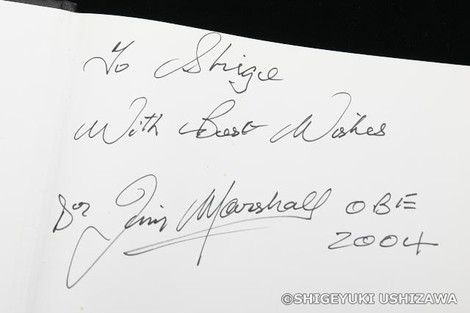 To Shige
With Best Wishes
Dr Jim Marshall OBE
2004
©SHIGEYUKI USHIZAWA